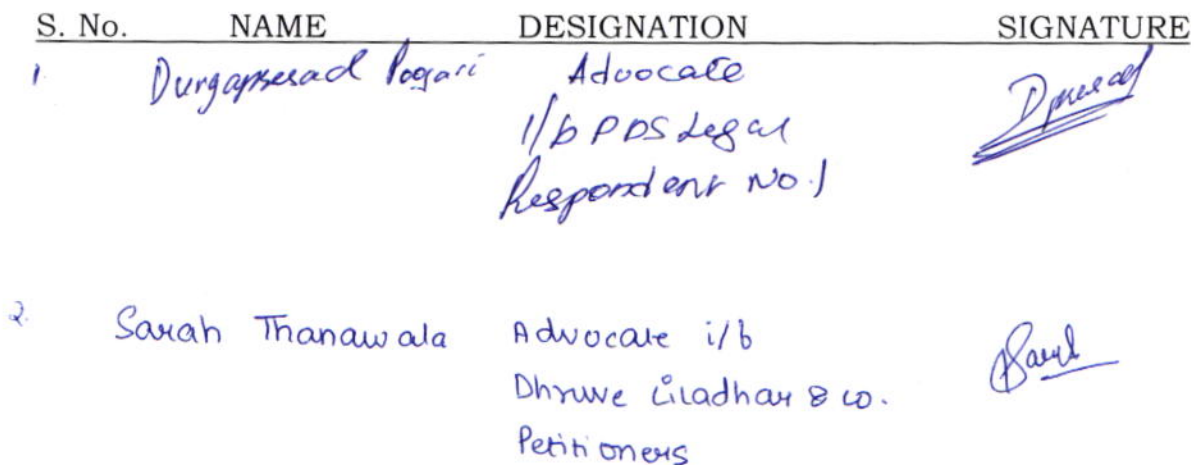 S. No. NAME DESIGNATION SIGNATURE
1. Durgaprasad Poojari Advocate
i/b PDS Legal
Respondent No.1
Dprasad
2. Sarah Thanawala Advocate i/b
Dhruve Liladhar & co.
Petitioners
Sarah